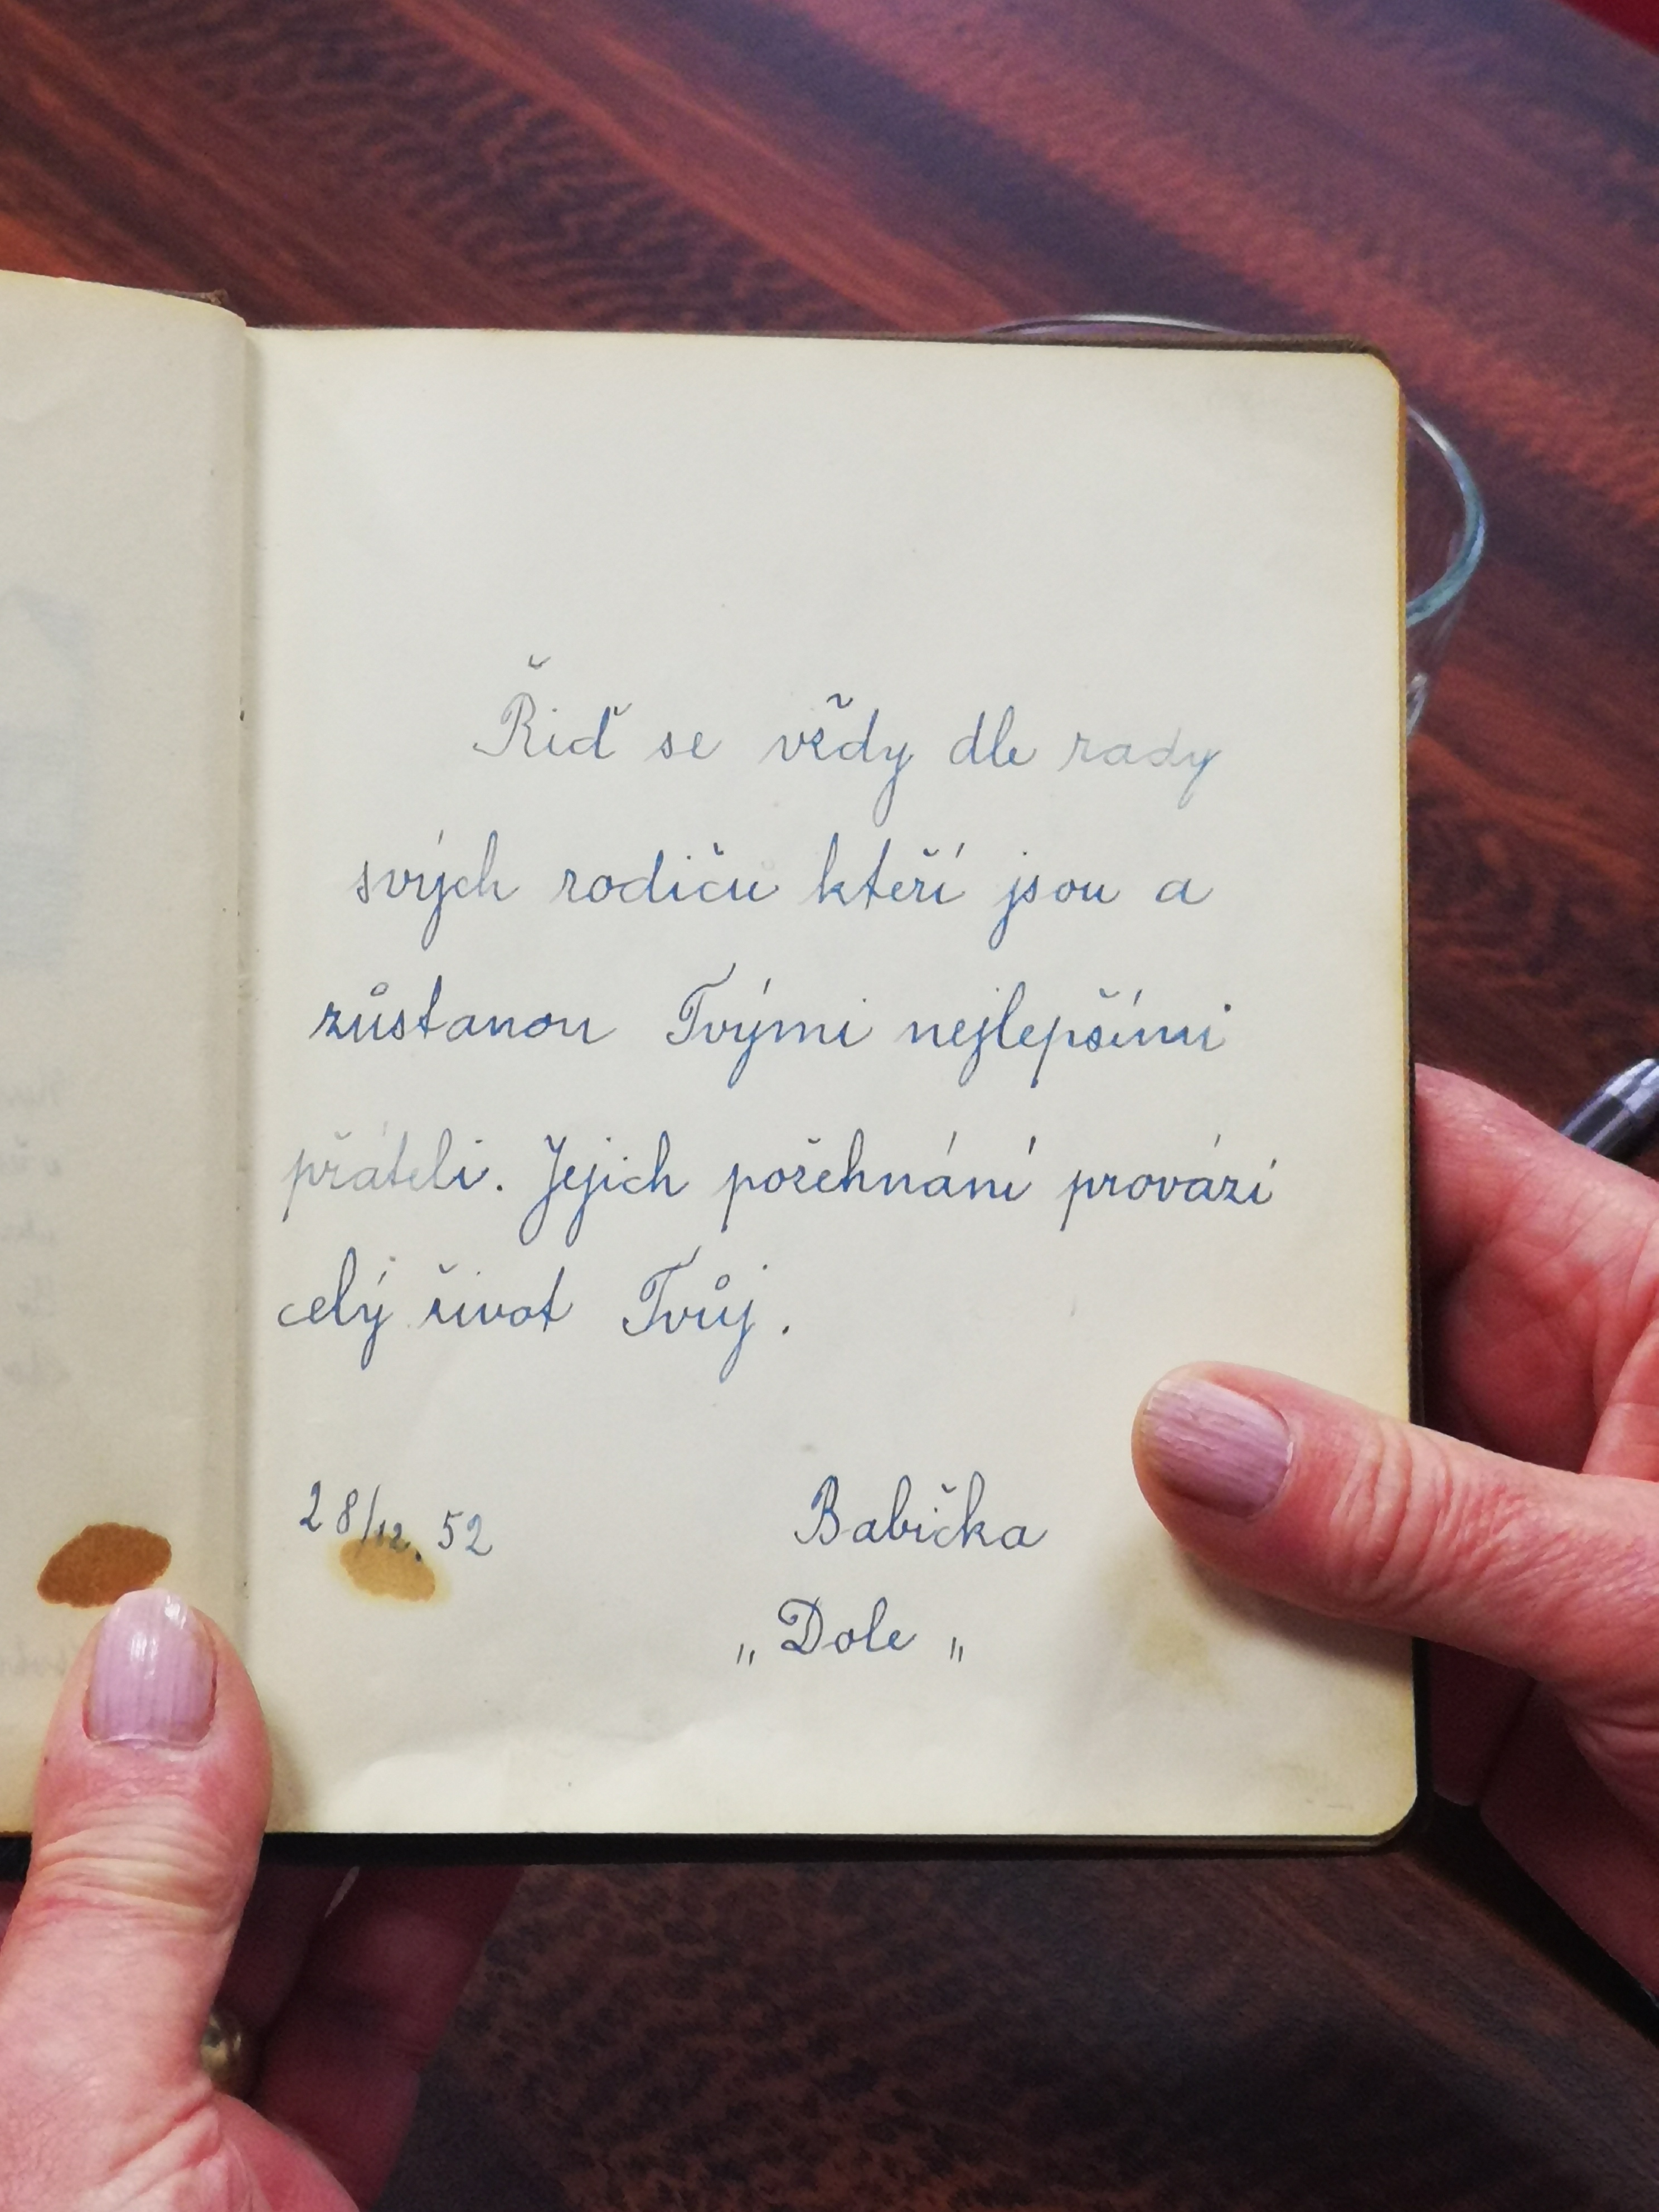 Řiď se vždy dle rady
svých rodiču kteří jsou a
zůstanou Tvými nejlepšími
přáteli. Jejich požehnání provází
celý život Tvůj.
28/12. 52
Babička
„Dole„